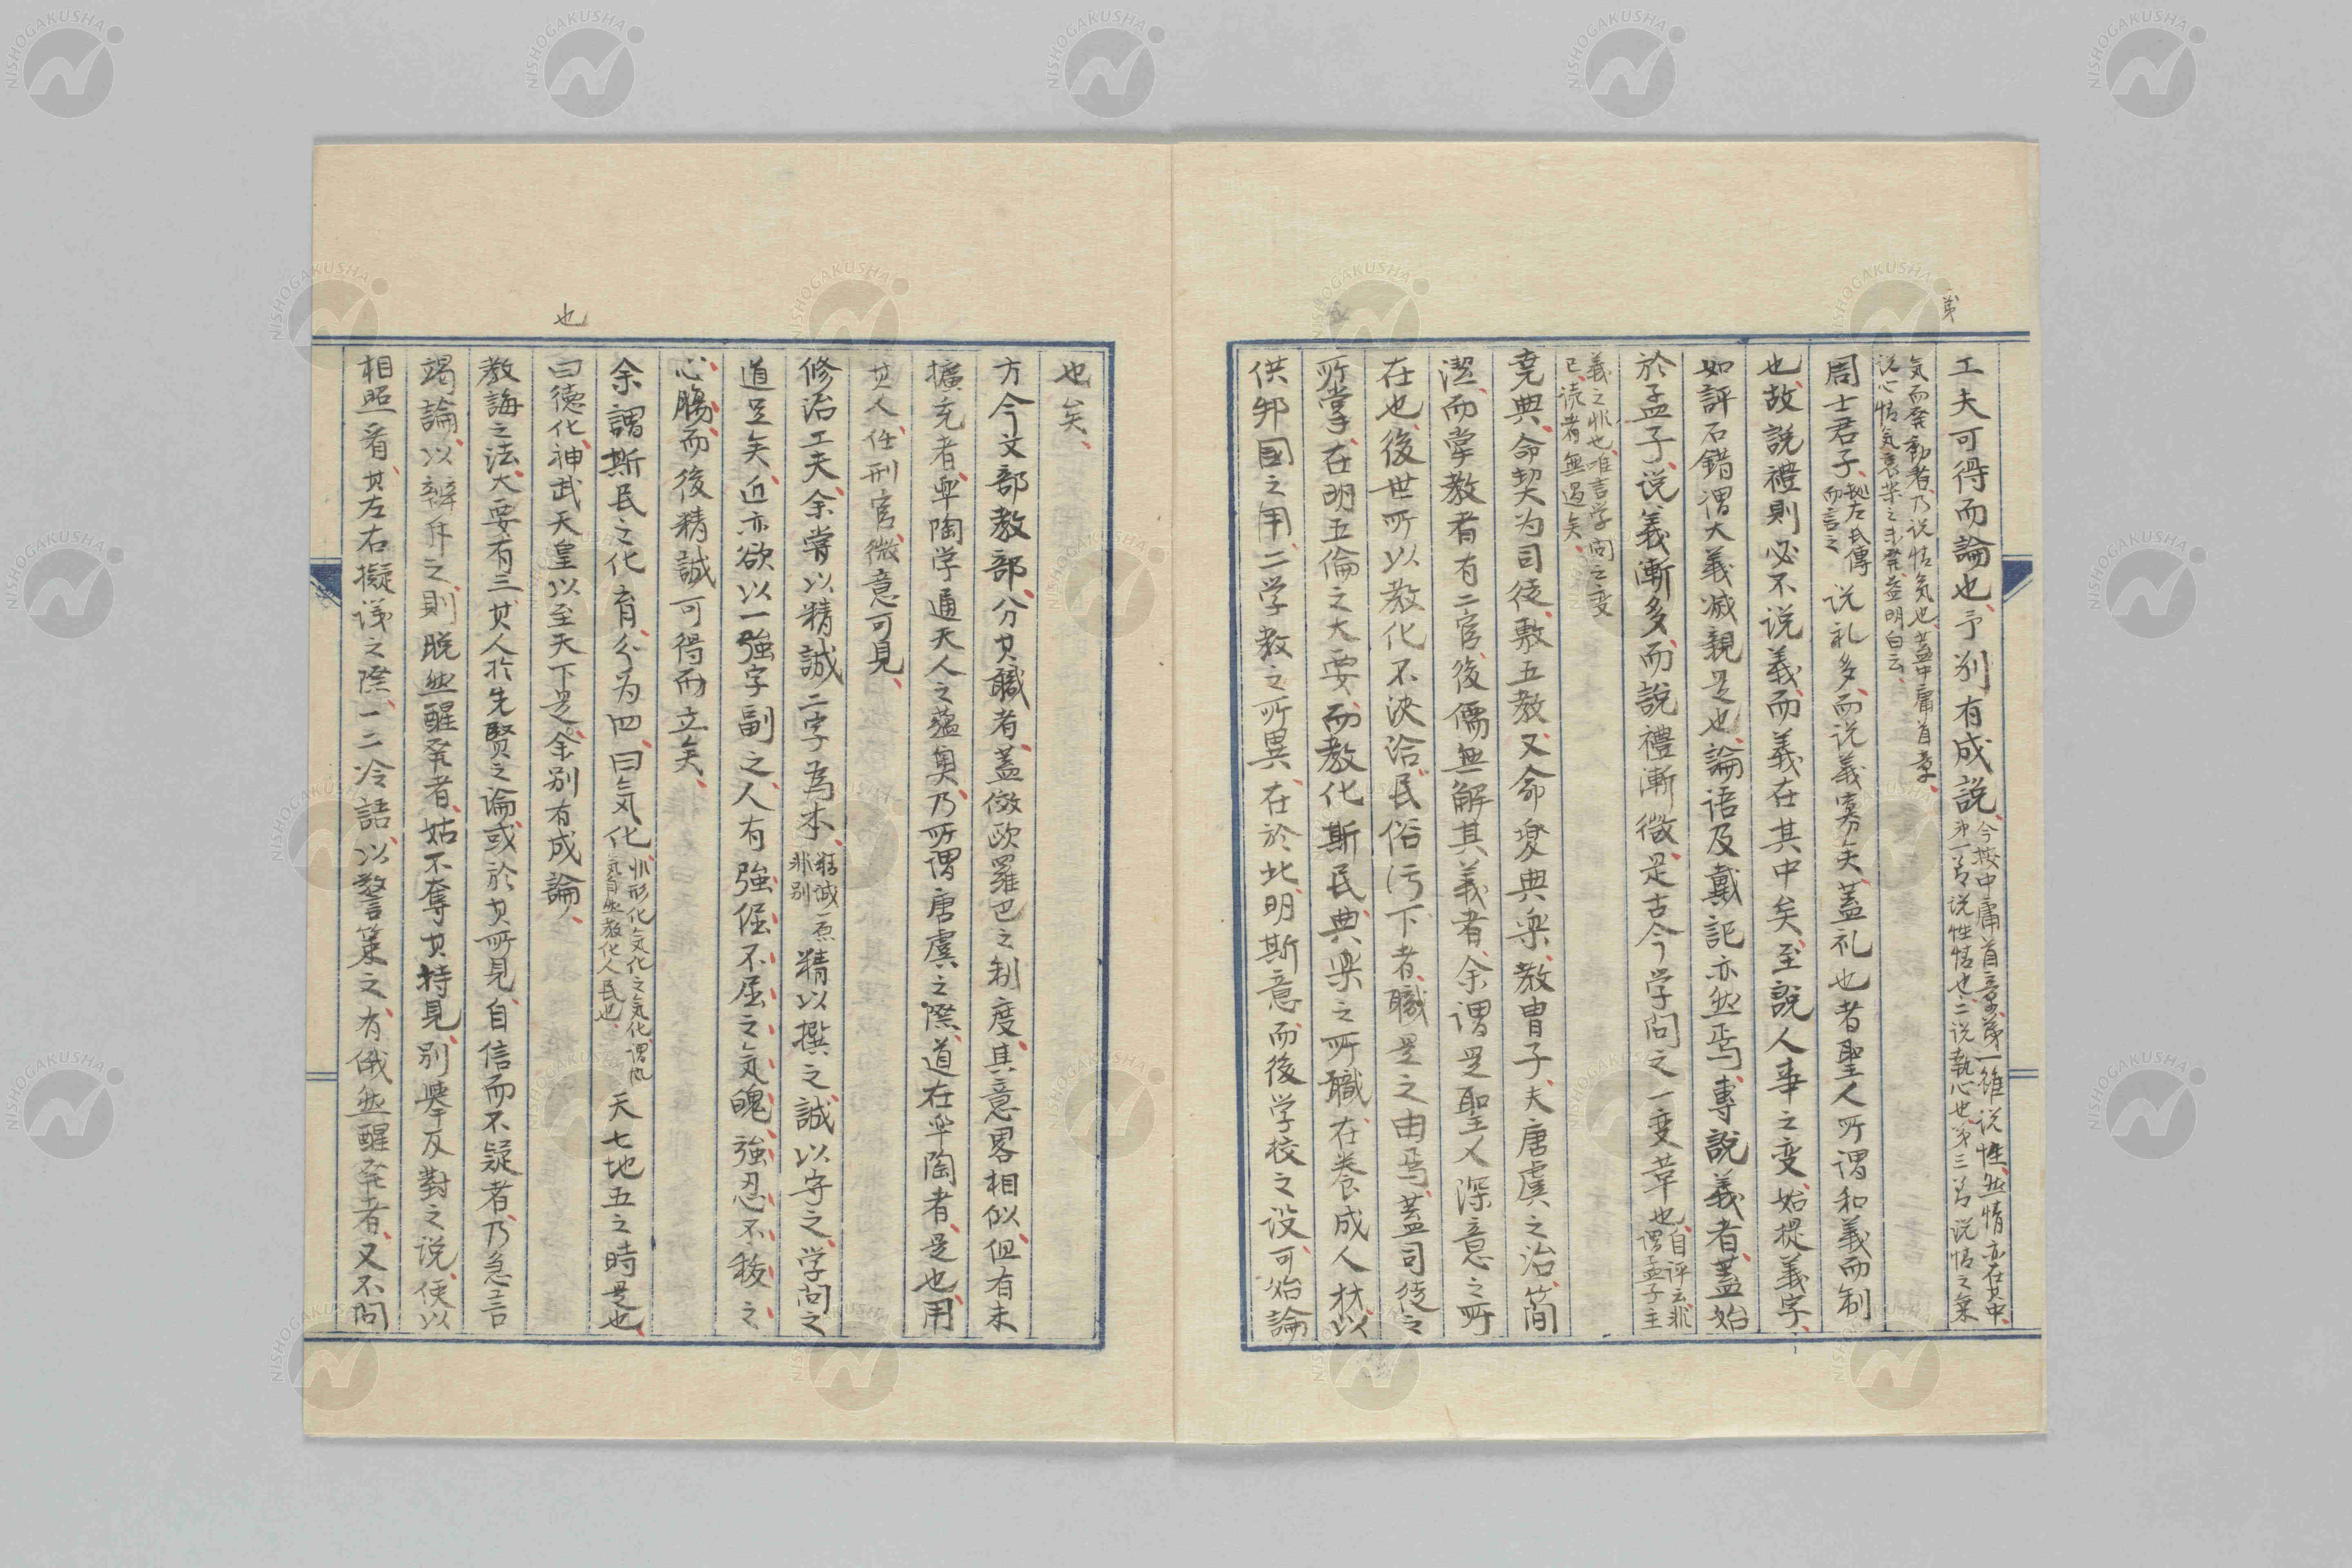 第
工夫可得而論也、予別有成説、今按中庸首章、第一雖说性、然情亦在其中、
第一节说性情也、二说執心也、第三节说情之氣
気而発動者、乃说情気也、蓋中庸首章、
说心情気哀楽之未発、益明白云、
周士君子、拠左氏傳
而言之
说礼多、而说義寡矣、蓋礼也者聖人所谓和義而制
也、故説禮則必不说義、而義在其中矣、至説人事之变、始提義字、
如評石錯谓大義滅親是也、論语及戴記亦然焉、專説義者、蓋始
於孟子、说義漸多、而説禮漸微、是古今学问之一变革也、自评云、非
谓孟子主
義之非也、唯言学问之变
已、读者無過矣、
尭典、命契为司徒、敷五教、又命夔典楽、教冑子、夫唐虞之治、簡
潔、而掌教者有二官、後儒無解其義者、余谓是聖人深意之所
在也、後世所以教化不浹洽、民俗污下者、職是之由焉、蓋司徒之
所掌、在明五倫之大要、而教化斯民、典楽之所職、在養成人材、以
供邦國之用、二学教之所異、在於此、明斯意、而後学校之设、可始論
也矣、
方今文部教部、分其職者、蓋倣歐羅巴之制度、其意畧相似、但有未
擴充者、皐陶学通天人之蘊奥、乃所谓唐虞之際、道在皐陶者、是也、用
其人任刑官、微意可見、
修治工夫、余嘗以精誠二字為本、精诚一而
非别
精以撰之、誠以守之、学问之
道足矣、近亦欲以一強字副之、人有強倔不屈之気魄、強忍不移之
心腸、而後精誠可得而立矣、
也
余謂斯民之化育、分为四、曰気化、非形化気化之気化、谓風
気自然教化人民也、
天七地五之時是也、
曰德化、神武天皇以至天下是、余别有成論、
教誨之法、大要有三、其人於先賢之论、或於其所見、自信而不疑者、乃急言
竭論、以辨斥之、則脱然醒発者、姑不奪其持見、別擧反對之说、使以
相照看、其左右擬議之際、一二冷語、以警策之、有俄然醒発者、又不问